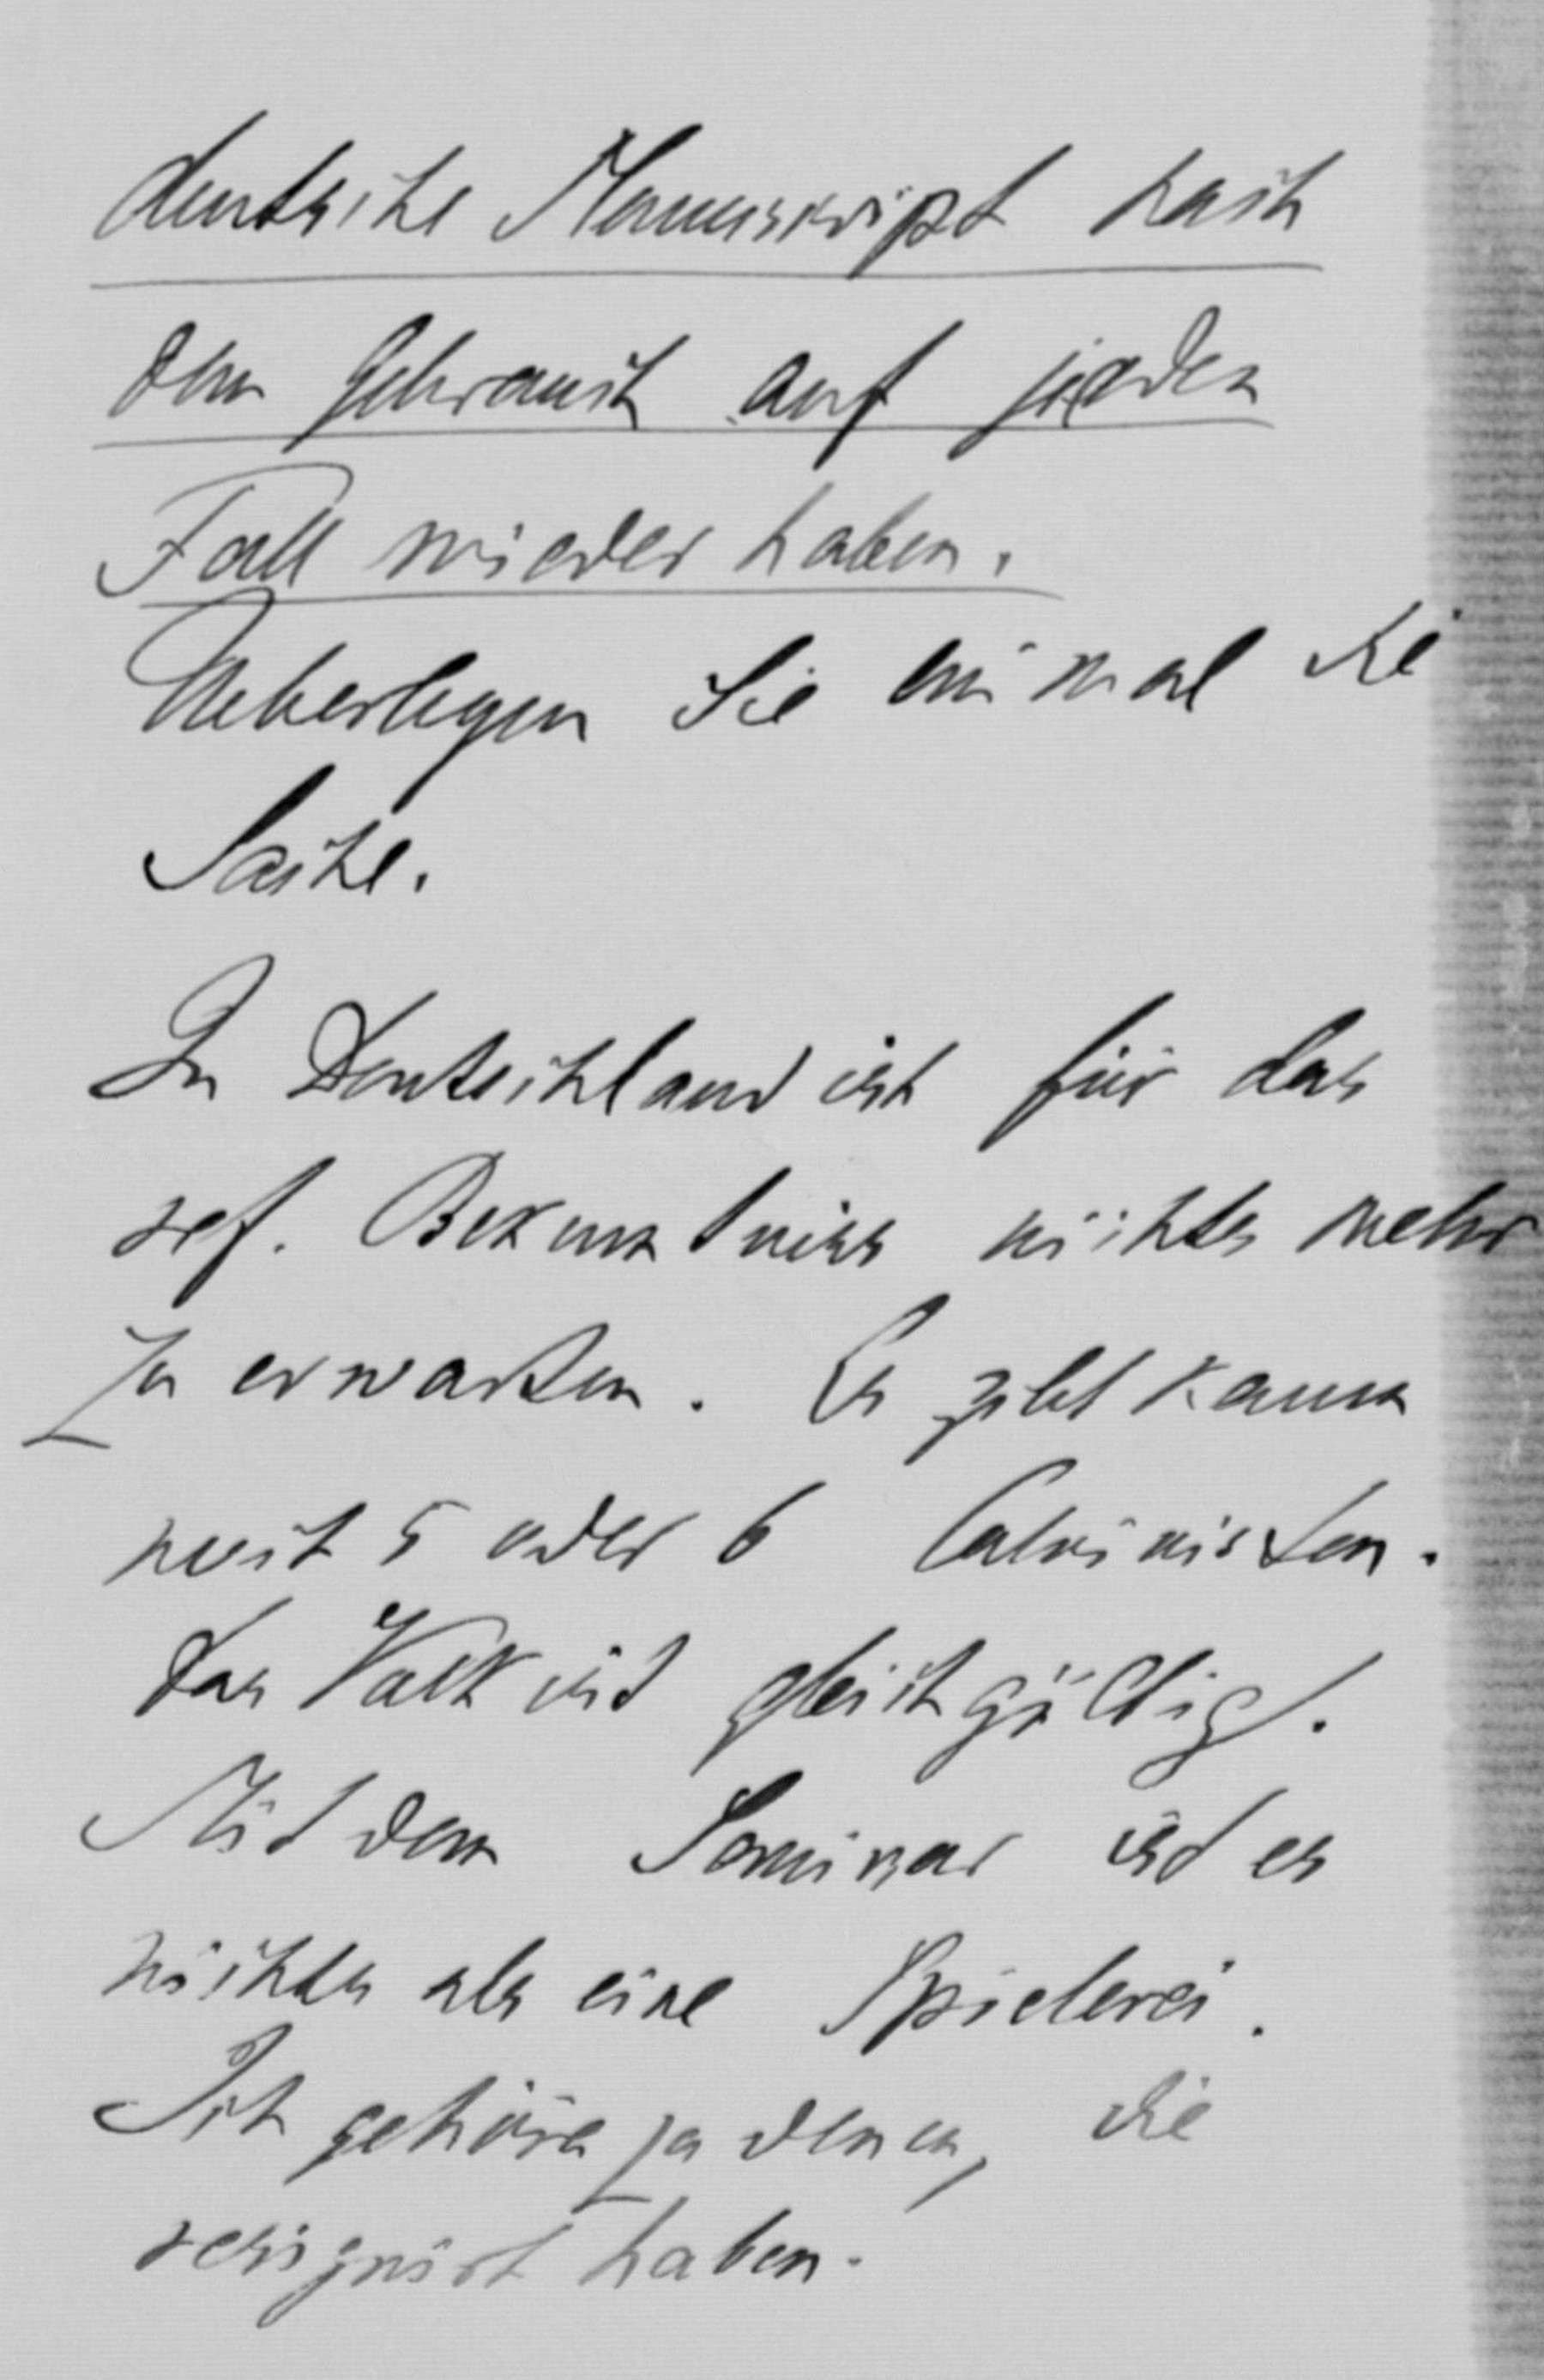 deutsche Manuskript nach
dem Gebrauch auf jeden
Fall wieder haben.
Ueberlegen Sie einmal die
Sache.
In Deutschland ist für das
ref. Bekenntniss nichts mehr
zu erwarten. Es gibt kaum
noch 5 oder 6 Calvinisten.
Das Volk ist gleichgültig.
Mit dem Seminar ist es
nichts als eine Spielerei.
Ich gehöre zu denen, die
resignirt haben.